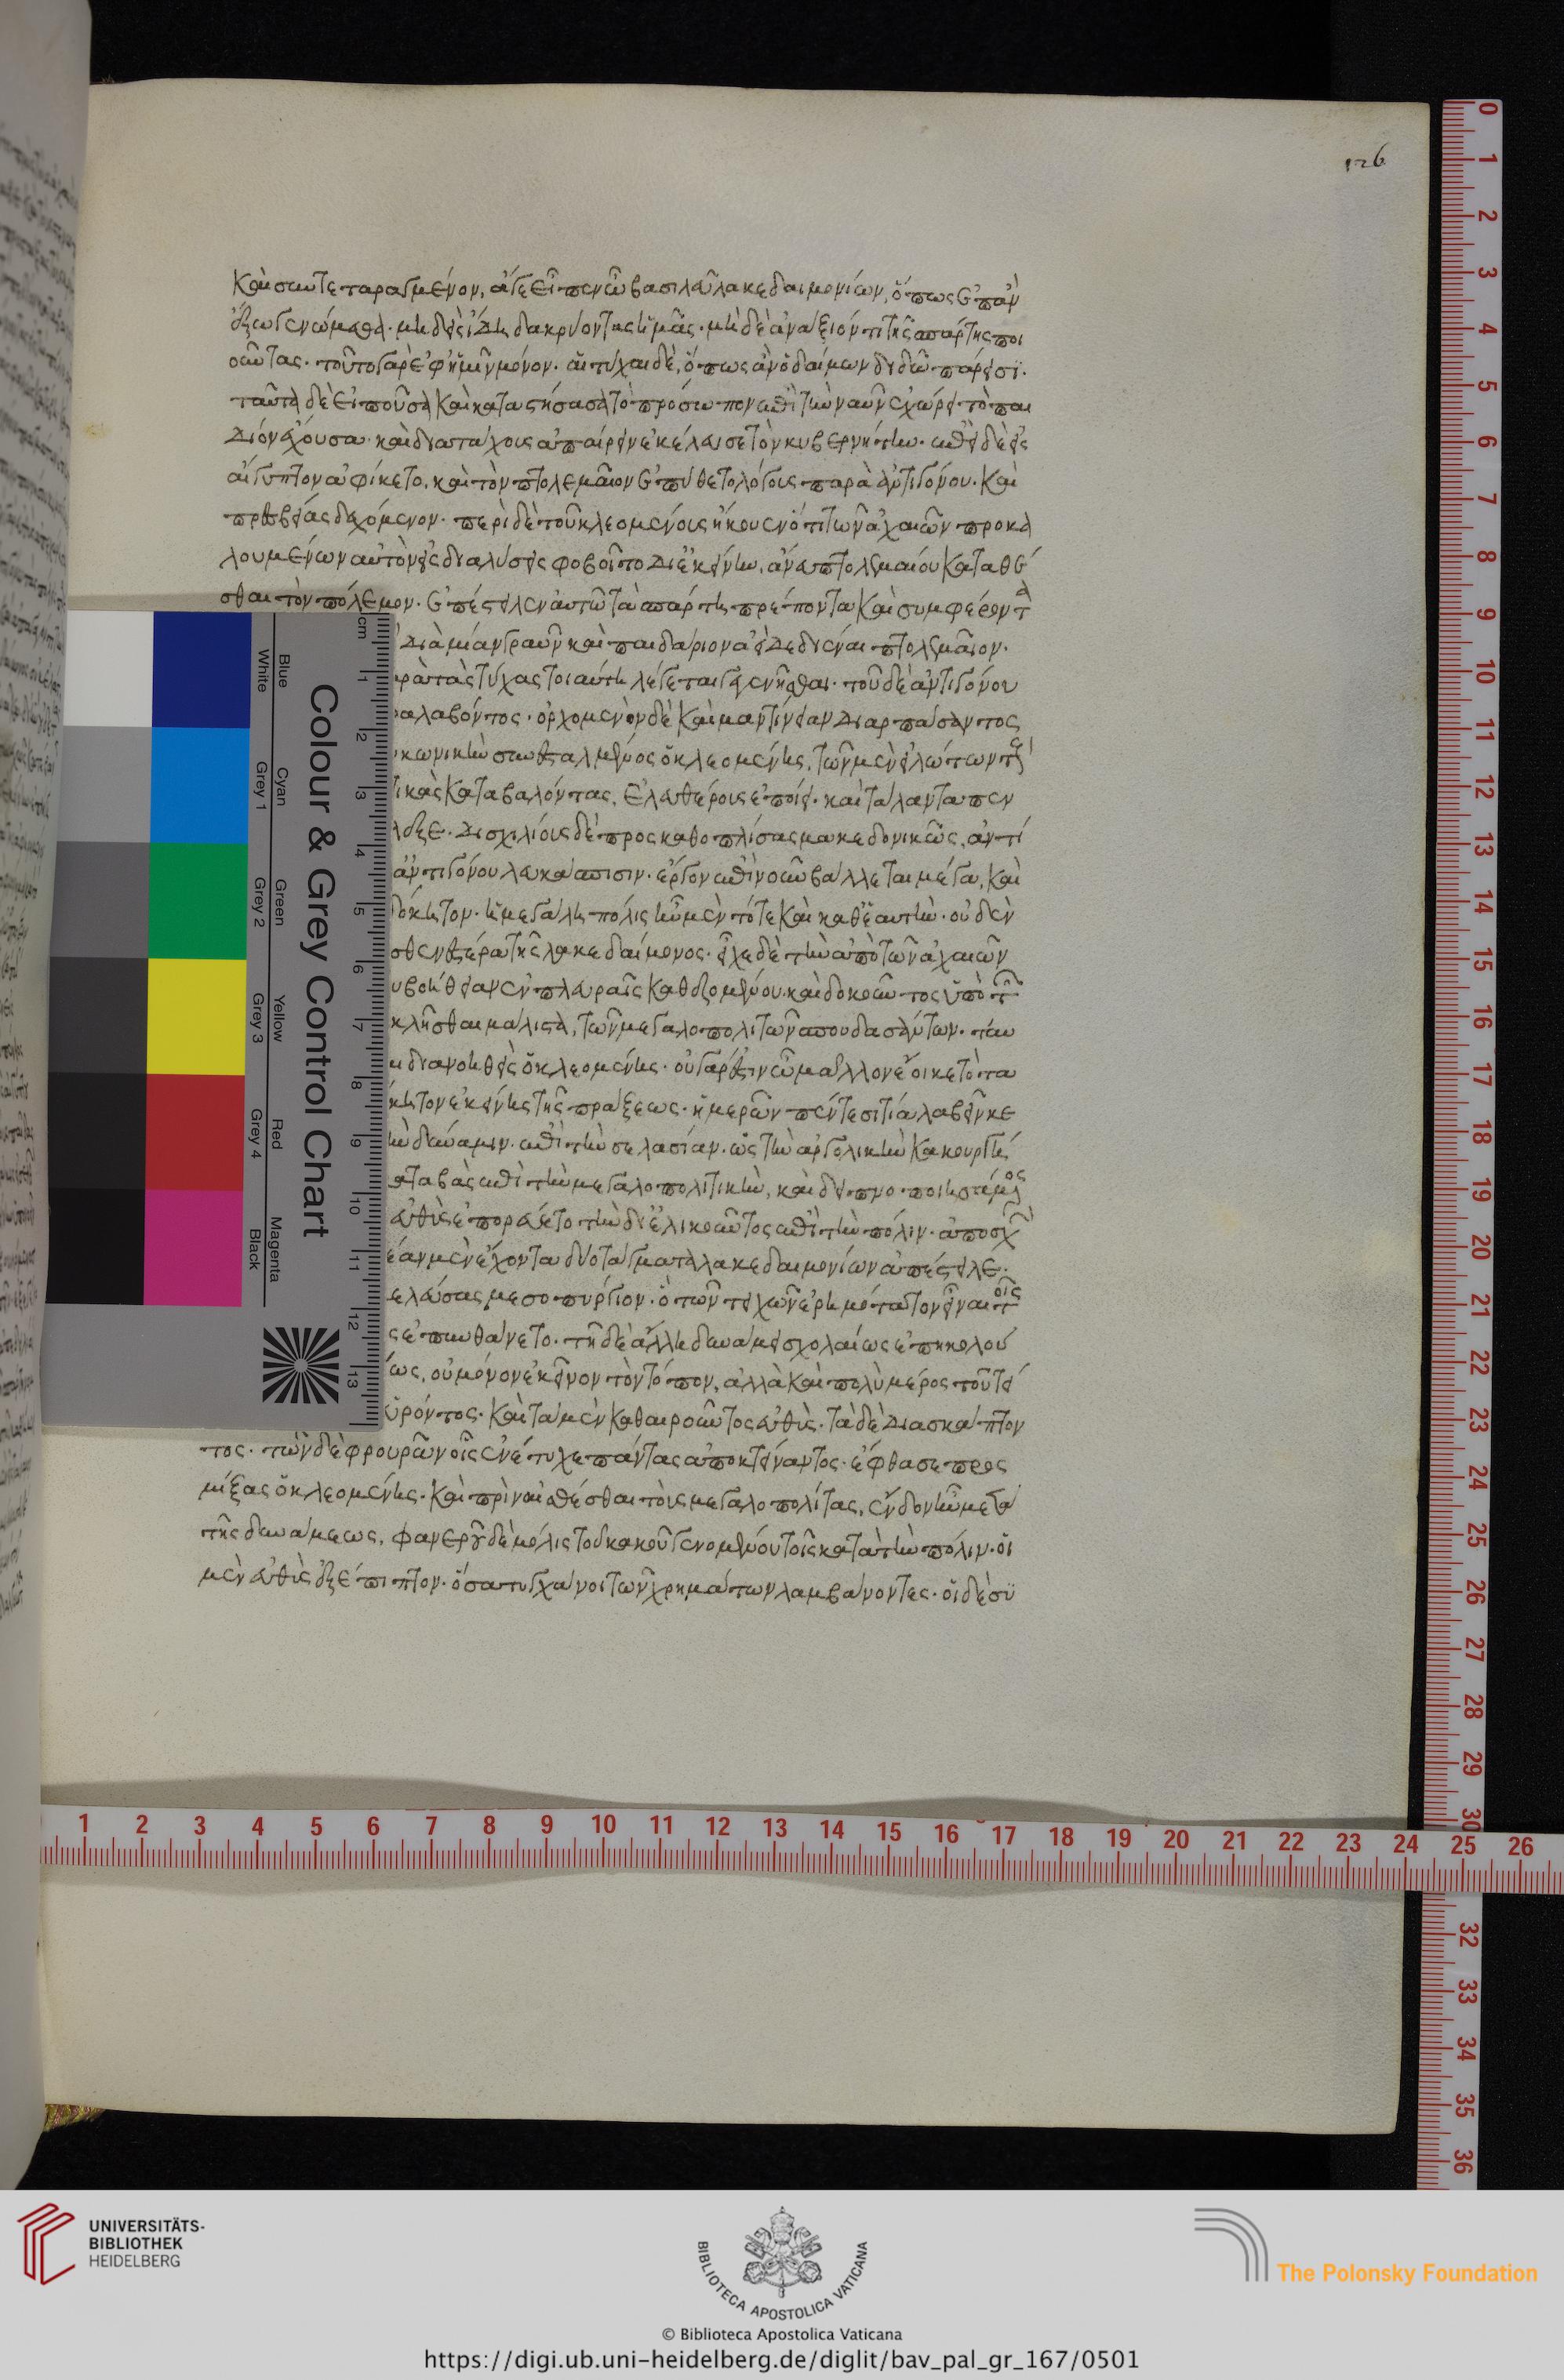 Καὶ συντεταραγμένον, ἄγε εἶπεν ὦ βασιλεῦ λακεδαιμονίων, ὅπως ἐπὰν
ἔξω γενώμεθα. μηδεὶς ἴδη δακρύοντας ἡμᾶς. μὴ δὲ ἀνάξιόν τι τῆς σπάρτης ποι
οῦντας. τοῦτο γὰρ ἐφ' ἡμῖν μόνον. αἱ τύχαι δὲ, ὅπως ἂν ὁ δαίμων διδῶ πάρεισϊ.
ταῦτα δὲ εἰποῦσα καὶ καταστήσασα τὸ πρόσωπον ἐπὶ τὴν ναῦν ἐχώρει τὸ παι
δίον ἔχουσα. καὶ διαταχους ἀπαίρειν ἐκέλευσε τὸν κυβερνήτην. ἐπεὶ δὲ εἰς
αἴγυπτον ἀφίκετο, καὶ τὸν πτολεμαῖον ἐπύθετο λόγους παρὰ ἀντιγόνου. καὶ
πρεσβείας δεχόμενον. περὶ δὲ τοῦ κλεομένους ἤκουσεν ὅτι τῶν ἀχαιῶν προκα
λουμένων αὐτὸν εἰς διαλύσεις φοβοῖτο δι' ἐκείνην, ἄνευ πτολεμαίου καταθέ
σθαι τὸν πόλεμον. ἐπέστειλεν αὐτῶ τὰ σπάρτη πρέποντα καὶ συμφέροντα
διὰ μίαν γραῦν καὶ παιδάριον ἀεὶ δεδιέναι πτολεμαῖον.
ρὰ τὰς τύχας τοιαύτη λέγεται γεγενῆσθαι. τοῦ δὲ ἀντιγόνου
ραλαβόντος. ὀρχομενὸν δὲ καὶ μαντίνειαν διαρπάσαντος
κωνικὴν συνεσταλμένος ὁ κλεομένης, τῶν μὲν εἱλώτων τοὺς
τικὰς καταβαλόντας, ἐλευθέρους ἐποίει. καὶ τάλαντα πεν
λεξε. δισχιλίους δὲ προσκαθοπλίσας μακεδονικῶς, ἀντί
ἀντιγόνου λευκάσπισιν. ἔργον ἐπὶ νοῦν βάλλεται μέγα, καὶ
δόκητον. ἡ μεγάλη πόλις ἦν μὲν τότε καὶ καθ' ἑαυτὴν. οὐδὲν
σθενεστέρα τῆς λακεδαίμονος. εἶχε δὲ τὴν ἀπὸ τῶν ἀχαιῶν
υ βοήθειαν ἐν πλευραῖς καθεζομένου. καὶ δοκοῦντος ὑπὸ τῶν
κλῆσθαι μάλιστα, τῶν μεγαλοπολιτῶν σπουδασάντων. ταύ
διανοηθεὶς ὁ κλεομένης. οὐ γὰρ ἔστιν ὧ μᾶλλον ἔοικε τὸ τα
κητον ἐκείνης τῆς πράξεως. ἡμερῶν πέντε σιτία λαβεῖν κε
ὴν δύναμιν. ἐπὶ τὴν σελασίαν. ὡς τὴν ἀργολικὴν κακουργή
αταβὰς ἐπὶ τὴν μεγαλοπολιτικὴν, καὶ δειπνοποιησάμενος
εὐθὺς ἐπορεύετο τὴν δι' ἑλικοῦντος ἐπὶ τὴν πόλιν. ἀποσχὼν
έαν μὲν ἔχοντα δύο τάγματα λακεδαιμονίων ἀπέστειλε.
ελεύσας μεσοπύργιον. ὃ τῶν τειχῶν ἐρημότατον εἶναι τοῖς
ς ἐπυνθάνετο. τῆ δὲ ἄλλη δυνάμει σχολαίως ἐπηκολού
έως, οὐ μόνον ἐκεῖνον τὸν τόπον, ἀλλὰ καὶ πολὺ μέρος τοῦ τεί
ὑρόντος. καὶ τὰ μὲν καθαιροῦντος εὐθὺς. τὰ δὲ διασκάπτον
τος. τῶν δὲ φρουρῶν οἷς ἐνέτυχε πάντας ἀποκτείναντος. ἔφθασε προς
μίξας ὁ κλεομένης. καὶ πρὶν αἰσθέσθαι τοὺς μεγαλοπολίτας, ἔνδον ἦν μετὰ
τῆς δυνάμεως, φανεροῦ δὲ μόλις τοῦ κακοῦ γενομένου τοῖς κατὰ τὴν πόλιν. οἱ
μὲν εὐθὺς ἐξέπιπτον. ὅσα τυγχάνοι τῶν χρημάτων λαμβάνοντες. οἱ δὲ σϋ
126
Colour & Grey Control Chart
Blue Cyan Green Yellow Red Magenta
White Grey 1 Grey 2 Grey 3 Grey 4 Black
cm 1 2 3 4 5 6 7 8 9 10 11 12 13
0 1 2 3 4 5 6 7 8 9 10 11 12 13 14 15 16 17 18 19 20 21 22 23 24 25 26 27 28 29 30 32 33 34 35 36
1 2 3 4 5 6 7 8 9 10 11 12 13 14 15 16 17 18 19 20 21 22 23 24 25 26
UNIVERSITÄTS-
BIBLIOTHEK
HEIDELBERG
BIBLIOTECA APOSTOLICA VATICANA
The Polonsky Foundation
© Biblioteca Apostolica Vaticana
https://digi.ub.uni-heidelberg.de/diglit/bav_pal_gr_167/0501